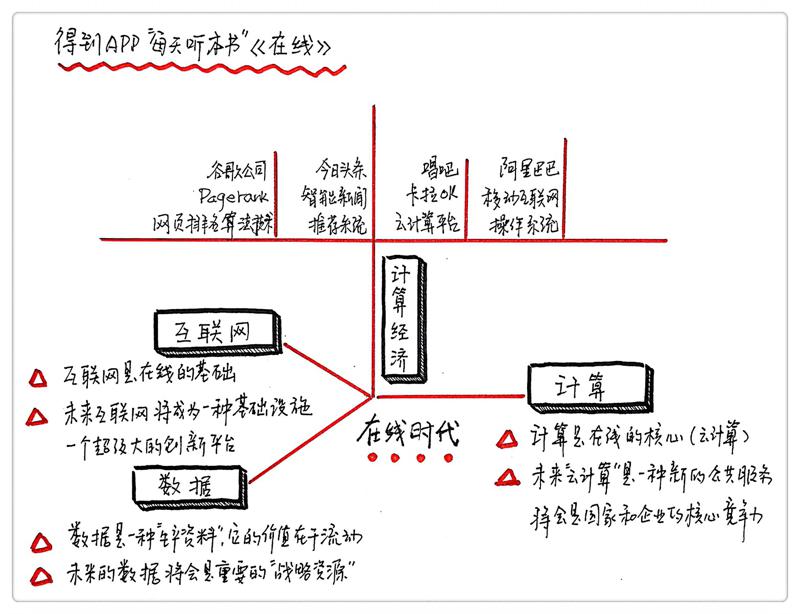 得到APP"每天听本书"《在线》
谷歌公司
Pagerank
网页排名算法技术
今日头条
智能新闻
推荐系统
唱吧
卡拉OK
云计算平台
阿里巴巴
移动互联网
操作系统
计算经济
互联网
互联网是在线的基础
未来互联网将成为一种基础设施
一个超级大的创新平台
在线时代
计算
计算是在线的核心(云计算)
未来"云计算"是一种新的公共服务
将会是国家和企业的核心竞争力
数据
数据是一种"生产资料",它的价值在于流动
未来的数据将会是重要的"战略资源"